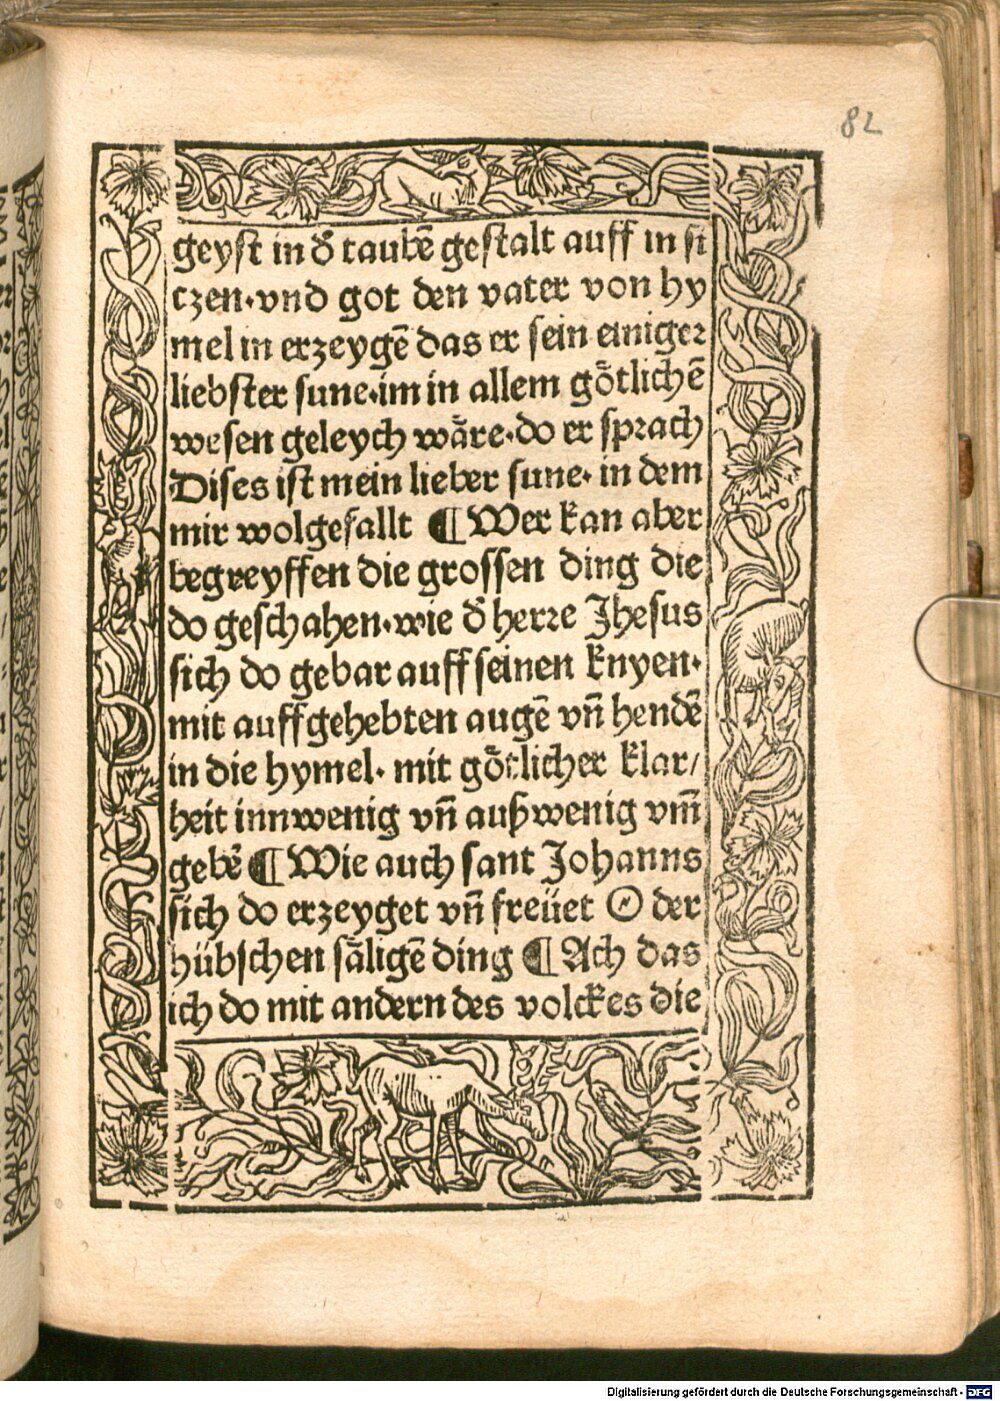 82
geyſt in d̊ taubē geſtalt auff in ſi
czen·vnd got den vater von hy
mel in erzeygē das er ſein einiger
liebſter ſune·im in allem goͤtlichē
weſen geleych waͤre·do er ſprach
Diſes iſt mein lieber ſune· in dem
mir wolgefallt ¶ Wer kan aber
begreyffen die groſſen ding die
do geſchahen·wie d̊ herre Jheſus
ſich do gebar auff ſeinen knyen·
mit auffgehebten augē vñ hendē
in die hymel· mit goͤtlicher klar/
heit innwenig vñ außwenig vm̄
gebē ¶ Wie auch ſant Johanns
ſich do erzeyget vñ freüet O der
hübſchen ſaͤligē ding ¶ Ach das
ich do mit andern des volckes die
Digitalisierung gefördert durch die Deutsche Forschungsgemeinschaft - DFG